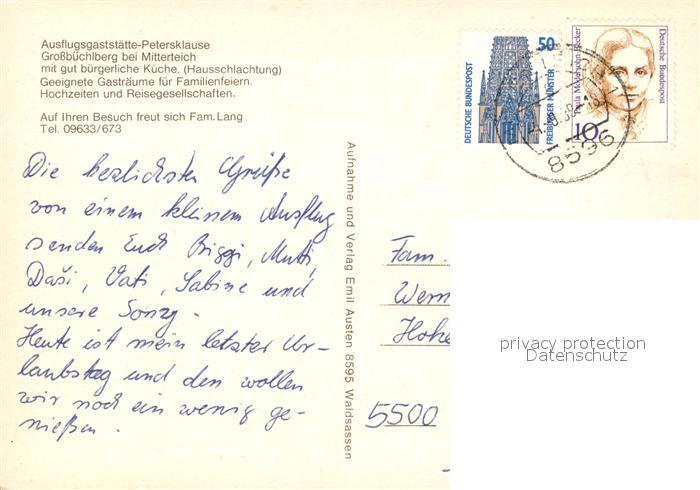 Ausflugsgaststätte-Petersklause
Großbüchlberg bei Mitterteich
mit gut bürgerliche Küche. (Hausschlachtung)
Geeignete Gasträume für Familienfeiern.
Hochzeiten und Reisegesellschaften.
Auf Ihren Besuch freut sich Fam. Lang
Tel. 09633/673
Die herzlichsten Grüße
von einem kleinen Ausflug
senden Euch Biggi, Mutti,
Daši, Vati, Sabine und
unsere Sonzy.
Heute ist mein letzter Ur-
laubstag und den wollen
wir noch ein wenig ge-
nießen.
Aufnahme und Verlag Emil Austen 8595 Waldsassen
DEUTSCHE BUNDESPOST
50
FREIBURGER MÜNSTER
Paula Modersohn-Becker
Deutsche Bundespost
10
8596
Fam.
Wern
Hohe
5500
privacy protection
Datenschutz